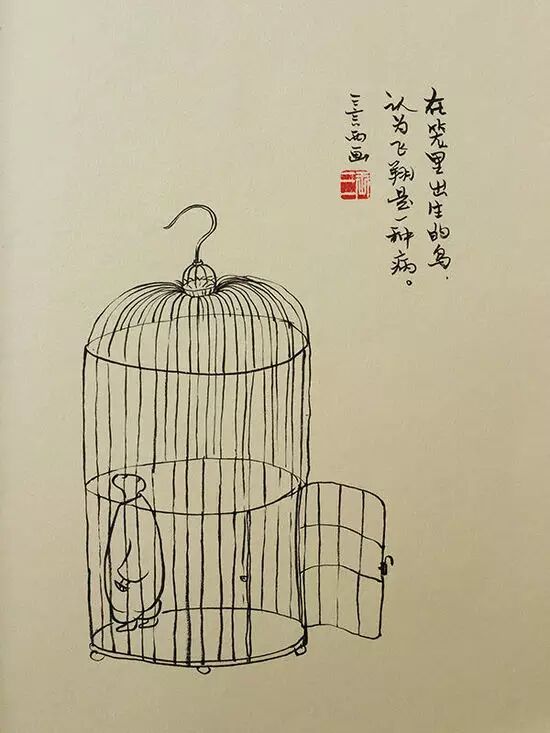 在笼里出生的鸟，
认为飞翔是一种病。
三言两画